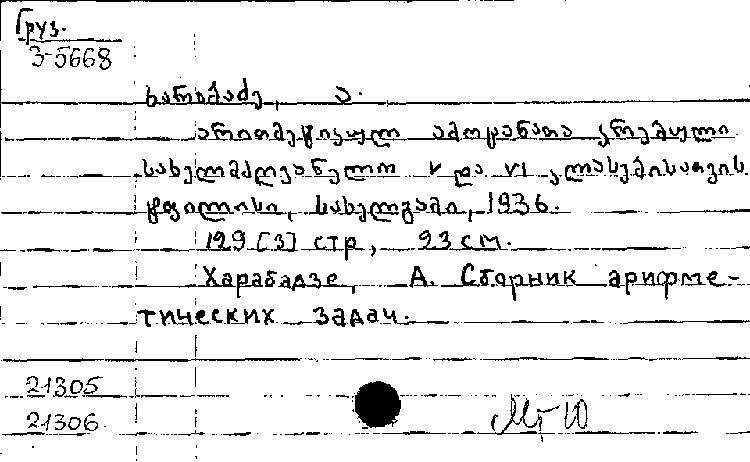 Груз.
3-5668
ხარაბაძე, ა.
არითმეტიკულ ამოცანათა კრებული
სახელმძღვანელო V და VI კლასებისათვის
ტფილისი, სახელგამი, 1936.
129 [3] стр, 23 см.
Харабадзе, А. Сборник арифме-
тических задач.
21305
21306